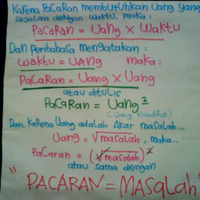 Karena Pacaran membutuhkan Uang yang
sejalan dengan waktu, maka:
Pacaran = Uang x Waktu
Dan Peribahasa mengatakan:
waktu = Uang maka:
Pacaran = Uang x Uang
atau ditulis
Pacaran = Uang²
(Uang Kuadrat)
Dan karena Uang adalah Akar masalah...
Uang = √masalah, maka...
Pacaran = (√masalah)²
atau sama dengan
"PACARAN = MASALAH"